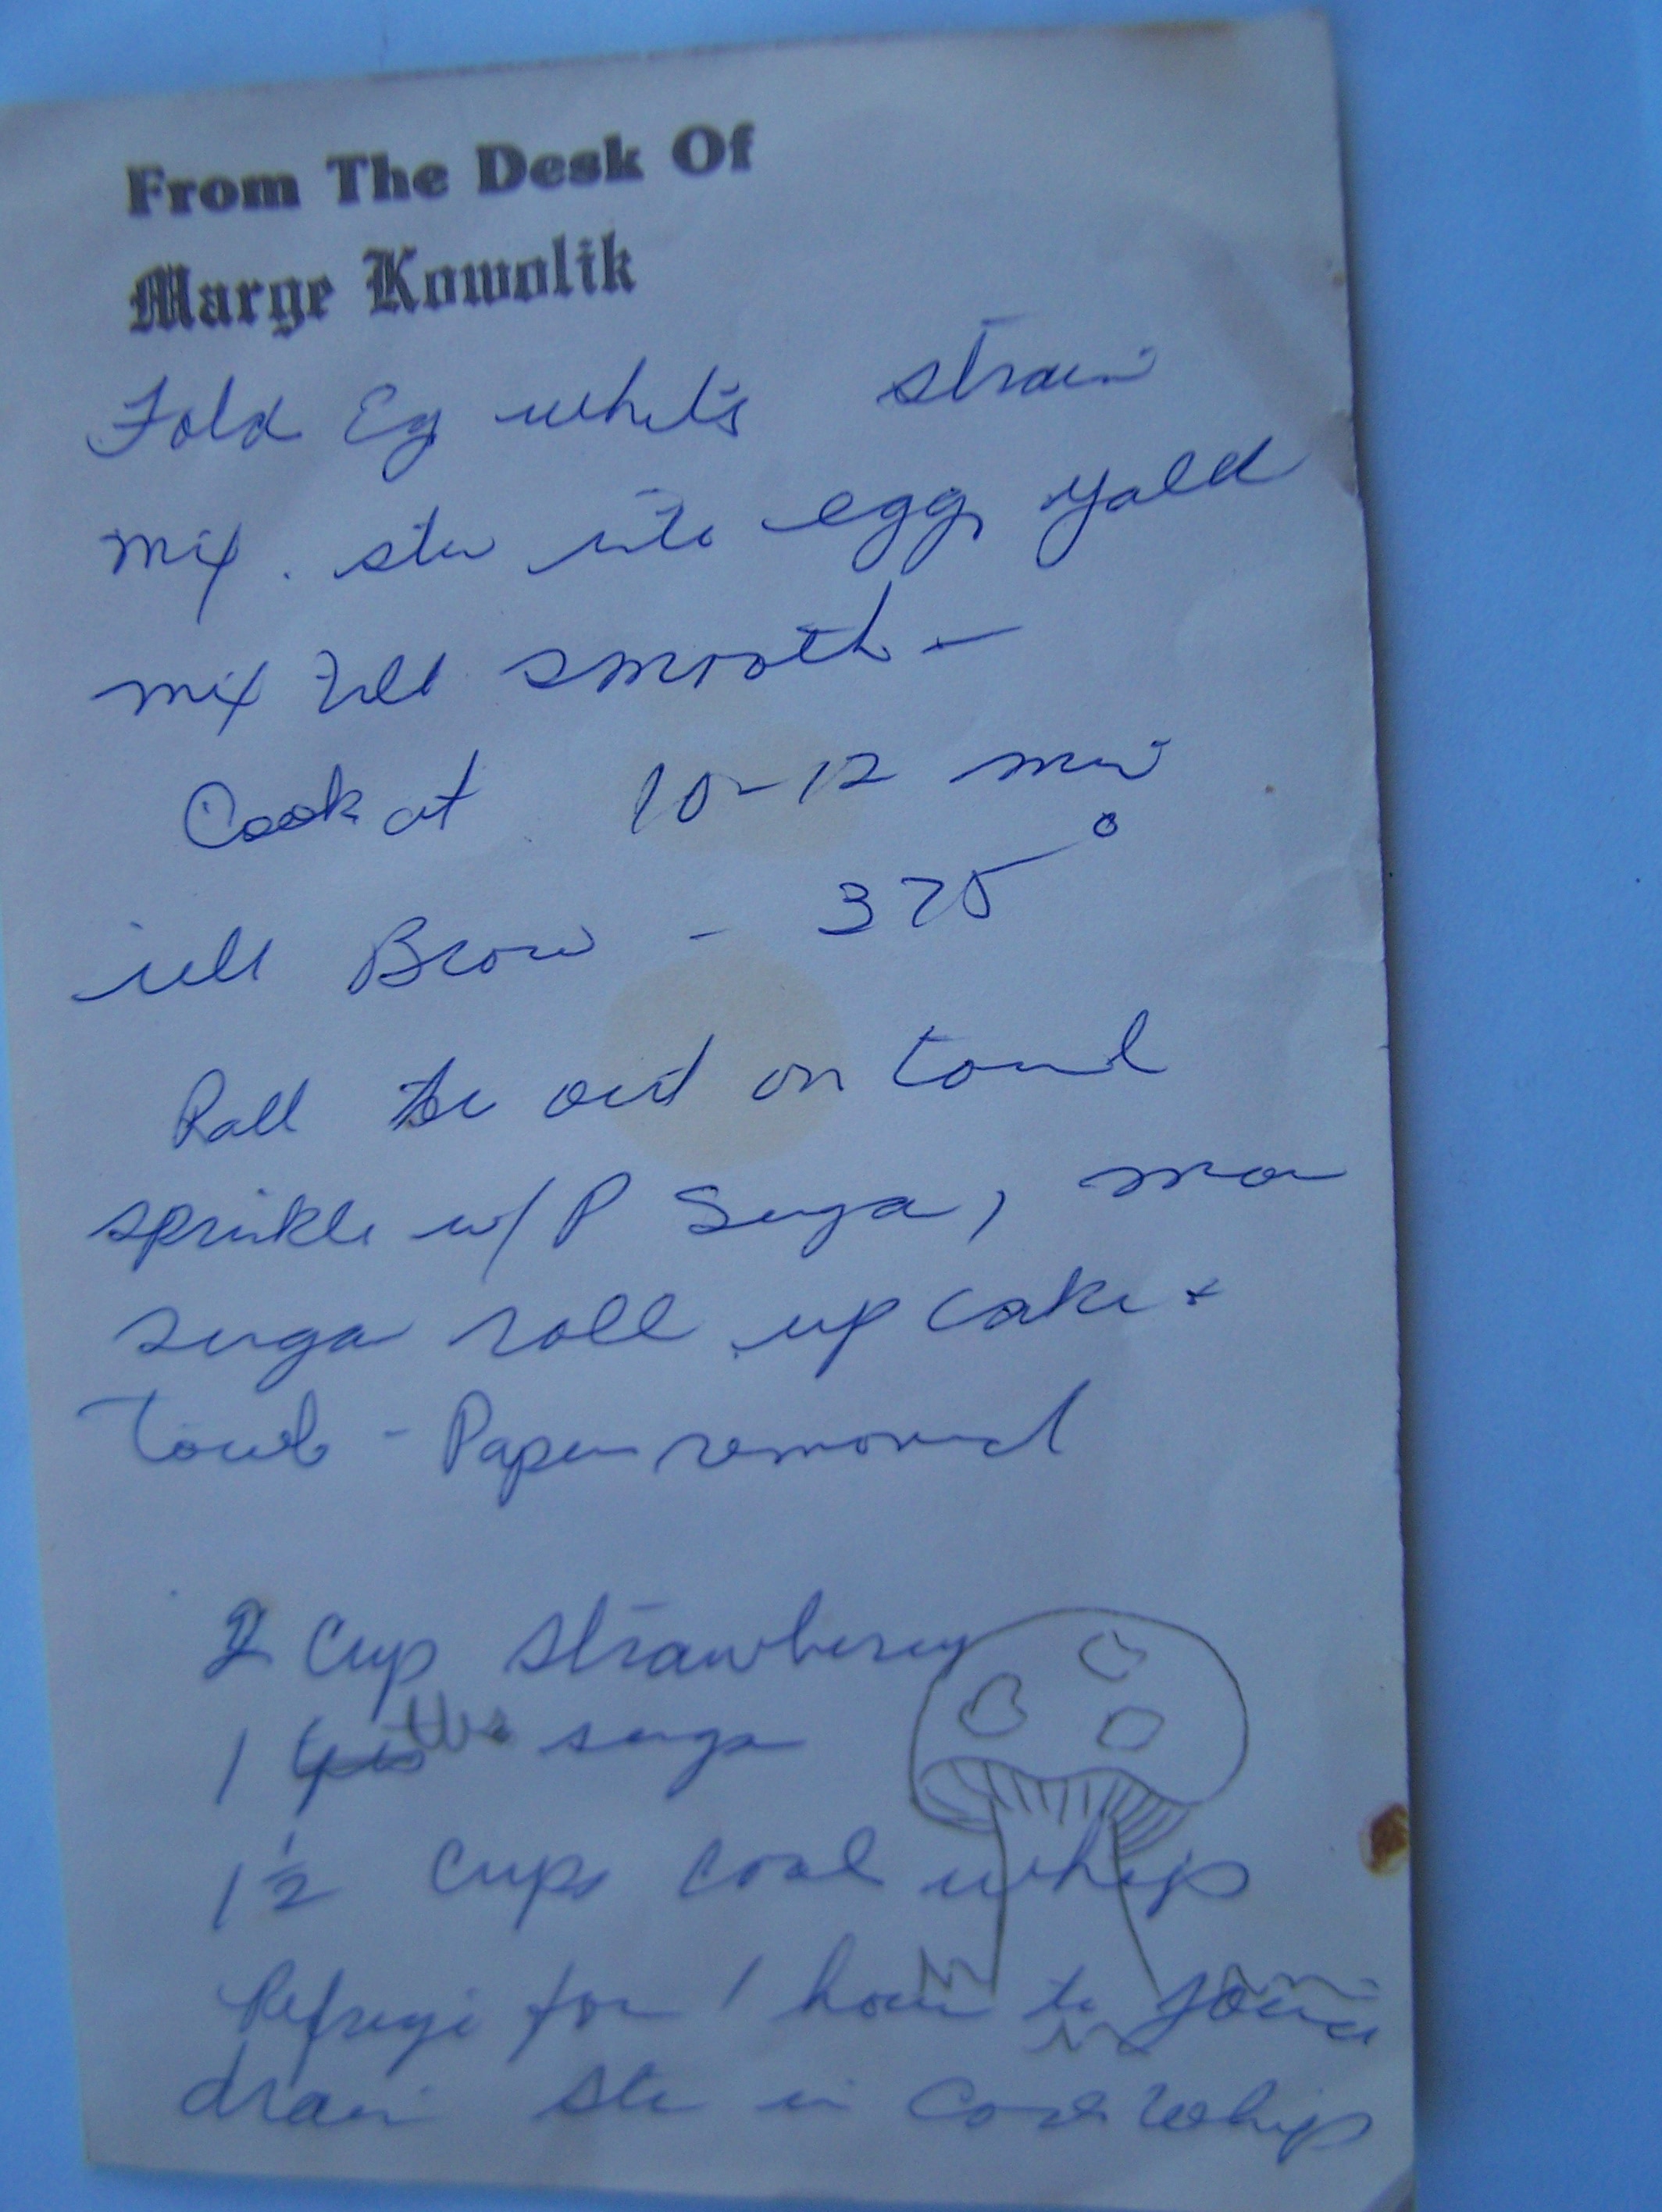 From The Desk Of
Marge Kowolik
Fold Eg whits strain
mix. stir into egg yold
mix till smooth -
Cook at 10-12 min
till Brow - 375°
Roll the out on towel
sprinkle w/ P Suga, mor
suga roll up cake +
Towel - Paper removed
2 Cup strawberry
1 tbs suga
1½ Cups cool whip
Refrige for 1 hour to
drain stir in Cool Whip